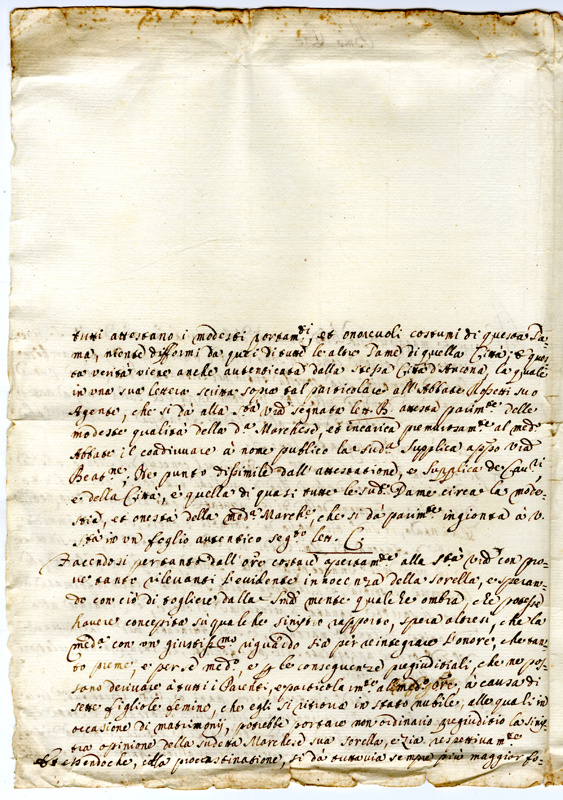 tutti attestano i modesti portam.ti, et onorevoli costumi di questa Da-
ma, niente difformi da q.ti di tutte le altre Dame di quella Città; e ques-
ta verità viene anche autenticata dalla stessa Città d'Ancona, la quale
in una sua lettera scritta sopra tal particolare all'Abbate Rossetti suo
Agente, che si dà alla S.tà V.ra segnata lett. B. attesta parim.te delle
modeste qualità della d.a Marchese, et incarica premurosam.te al med.o
Abbate il coadiuvare à nome publico la sud.a Supplica app.o V.ra
Beat.ne, Ne punto dissimile dall'attestatione, e Supplica de
e della Città, è quella di quasi tutte le sud.e Dame circa la mode-
stia, et onestà della med.a March.e, che si dà parim.te ingionta à V.
S.tà in un foglio autentico seg.to lett. C.
Facendosi pertanto dall'Or.e costare apertam.te alla S.tà V.ra con pro-
ve tanto rilevanti l'evidente innocenza della sorella, e speran-
do con ciò di togliere dalla mente qualche ombra, che potesse
havere concepita sù qualche sinistro rapporto, spera altresì, che la
med.a con un giustiss.mo riguardo sia per reintegrare l'onore, che tan-
to preme, e per se med.o, e p le conseguenze pregiuditiali, che ne pos-
sono derivare à tutti i Parenti, e particolarm.te all med.o Ore, à causa di
sette figliole femine, che egli si ritrova in stato nubile, alle quali in
occasione di matrimonij, potrebbe portare non ordinario pregiuditio la sinis-
tra opinione della sudetta Marchese sua sorella, e zia respettivam.te
Et essendoche, colla procrastinatione, si dà tuttavia sempre più maggior fo-